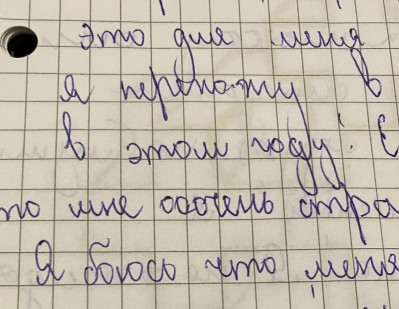 это для меня
я перехожу в
в этом году. Е
то мне ооочень стра
Я боюсь что меня